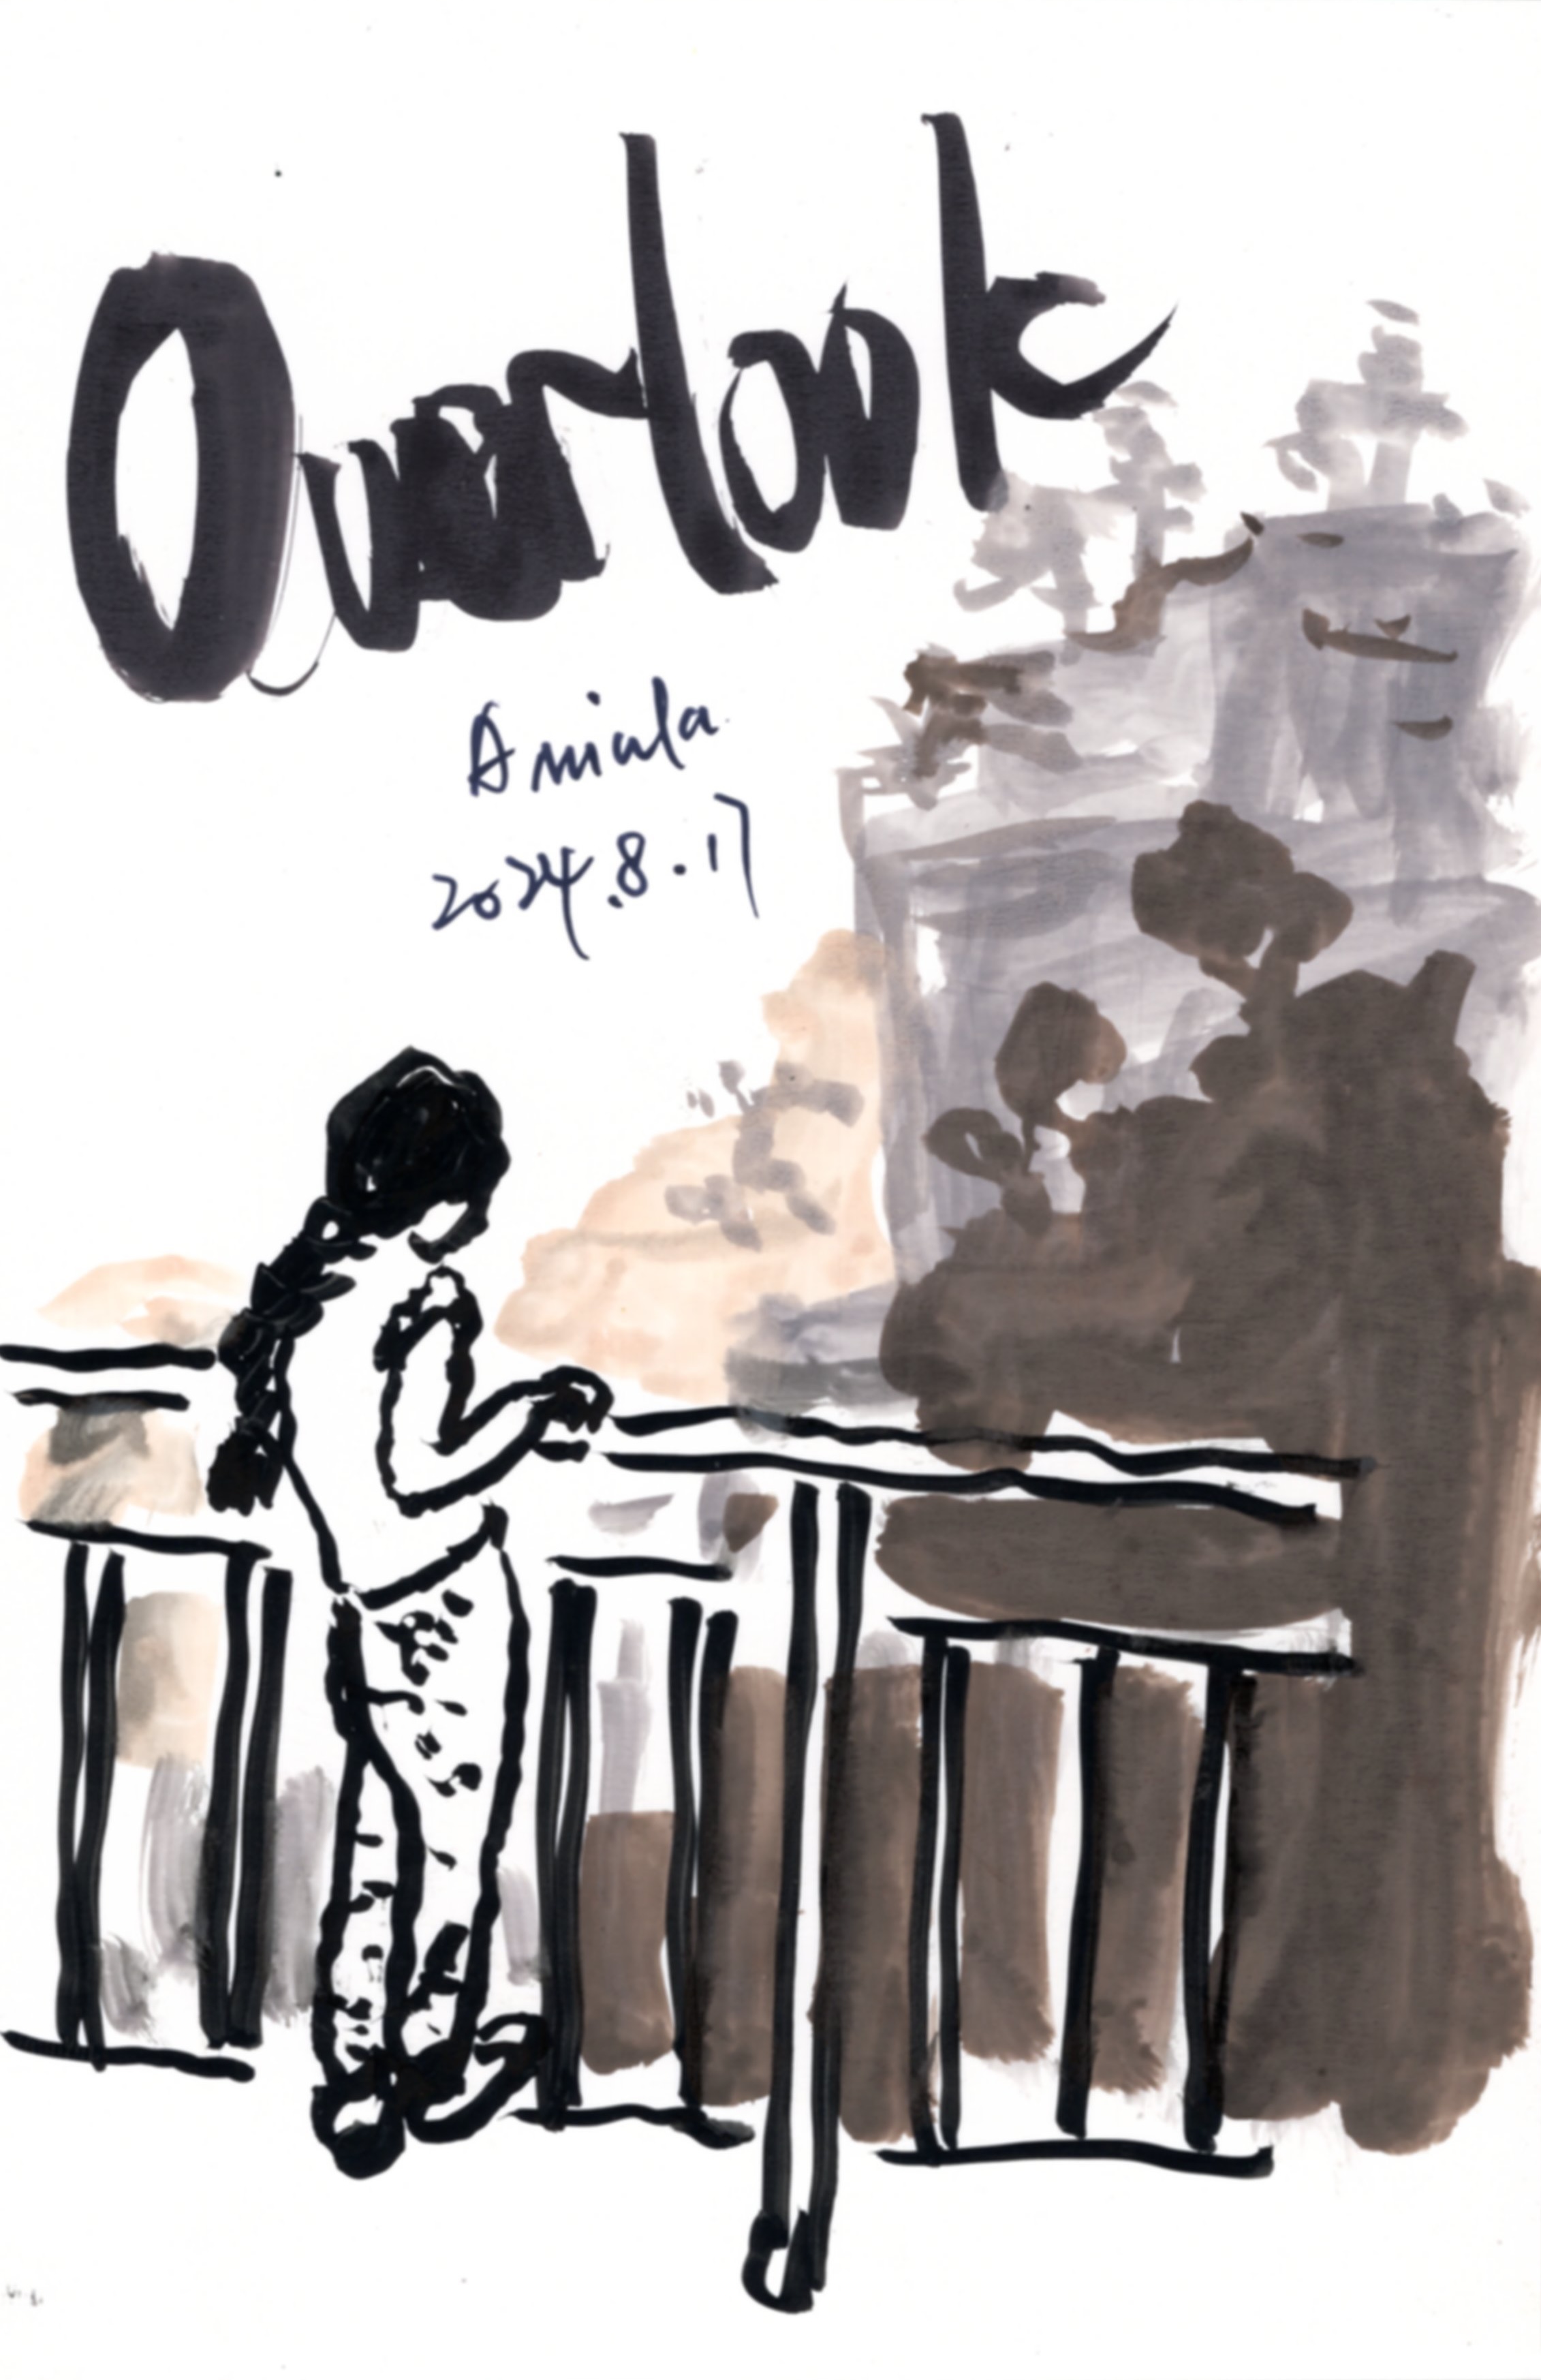 Overlook
Aniala
2024.8.17